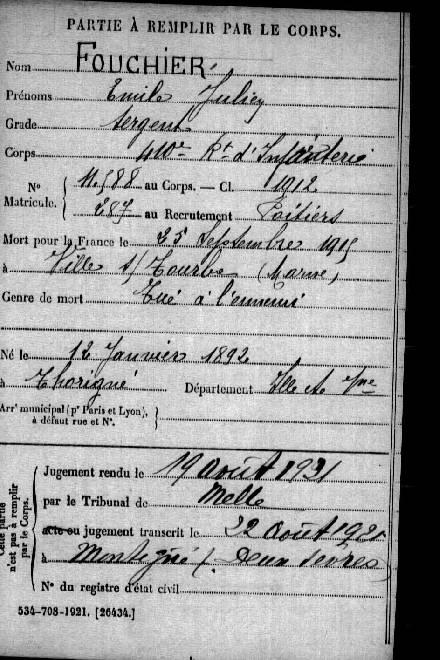 PARTIE À REMPLIR PAR LE CORPS.
Nom FOUCHIER
Prénoms Emile Julien
Grade Sergent
Corps 410e Rt d'Infanterie
No 11.588 au Corps. — Cl. 1912
Matricule. 287 au Recrutement Poitiers
Mort pour la France le 25 Septembre 1915
à Ville s/ Tourbe (Marne)
Genre de mort Tué à l'ennemi
Né le 12 Janvier 1892
à Thorigné Département Ille et Vne
Arrt municipal (pr Paris et Lyon),
à défaut rue et No.
Cette partie
n'est pas à remplir
par le Corps.
Jugement rendu le 19 août 1921
par le Tribunal de Melle
acte ou jugement transcrit le 22 août 1921
à Montigné (Deux Sèvres)
No du registre d'état civil
534-708-1921. [26434.]